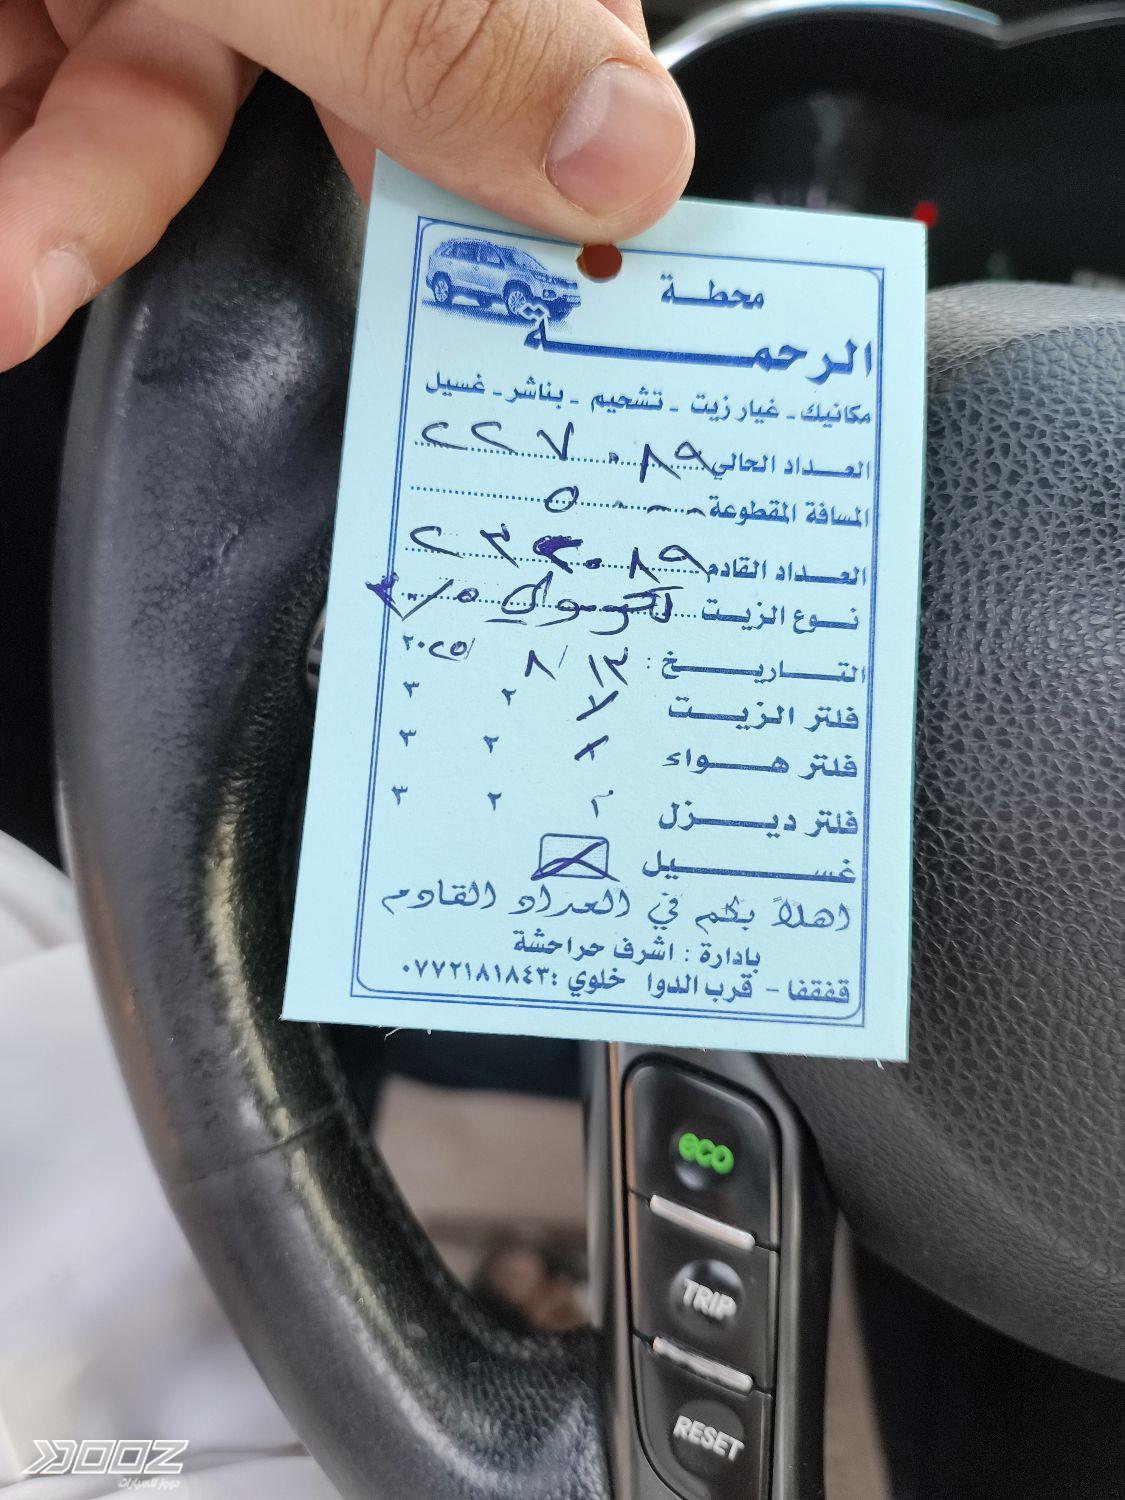 محطة
الرحمة
مكانيك - غيار زيت - تشحيم - بناشر - غسيل
العداد الحالي ٢٢٧٠٨٩
المسافة المقطوعة ٥٠٠٠
العداد القادم ٢٣٢٠٨٩
نوع الزيت
التاريخ : ١٣ / ٨ / ٢٠٢٥
فلتر الزيت ٢ ٣
فلتر هواء ٢ ٣
فلتر ديزل ٢ ٣
غسيل
اهلاً بكم في العداد القادم
بادارة : اشرف حراحشة
قفقفا - قرب الدوا خلوي : ٠٧٧٢١٨١٨٤٣
eco
TRIP
RESET
DOOZ
دووز للسيارات